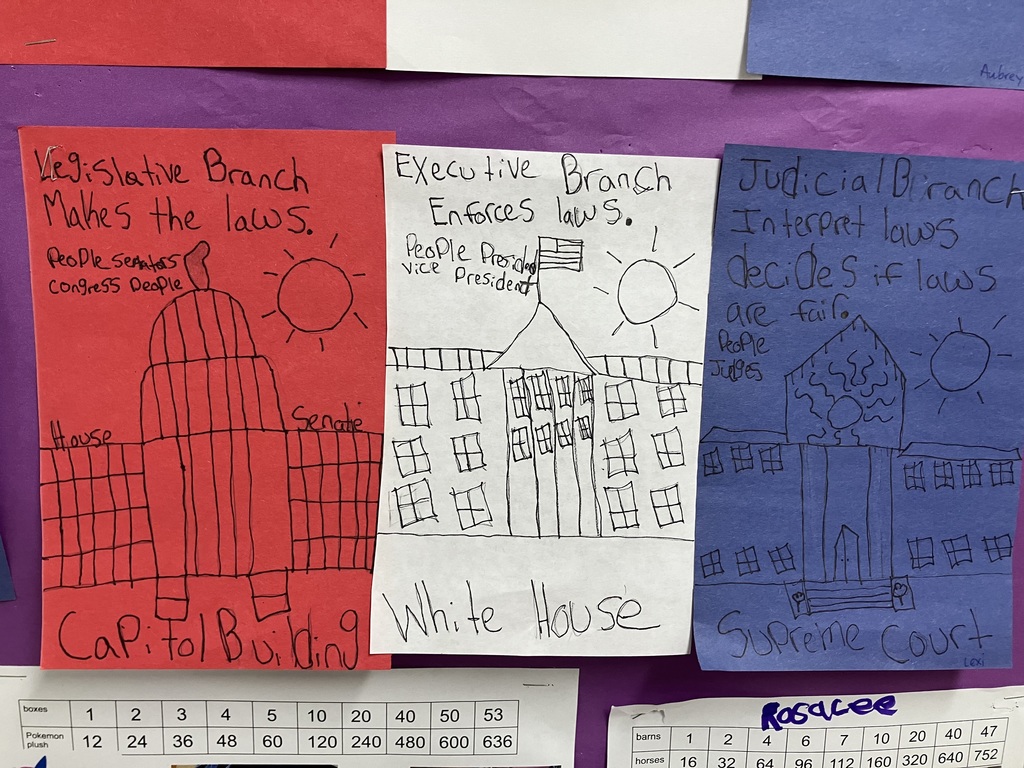 Aubrey
Legislative Branch
Makes the laws.
People senators
congress people
House
Senate
Capitol Building
Executive Branch
Enforces laws.
People President
vice President
White House
Judicial Branch
Interpret laws
decides if laws
are fair.
People
Judges
Supreme Court
Lexi
boxes 1 2 3 4 5 10 20 40 50 53
Pokemon plush 12 24 36 48 60 120 240 480 600 636
Rosacee
barns 1 2 4 6 7 10 20 40 47
horses 16 32 64 96 112 160 320 640 752